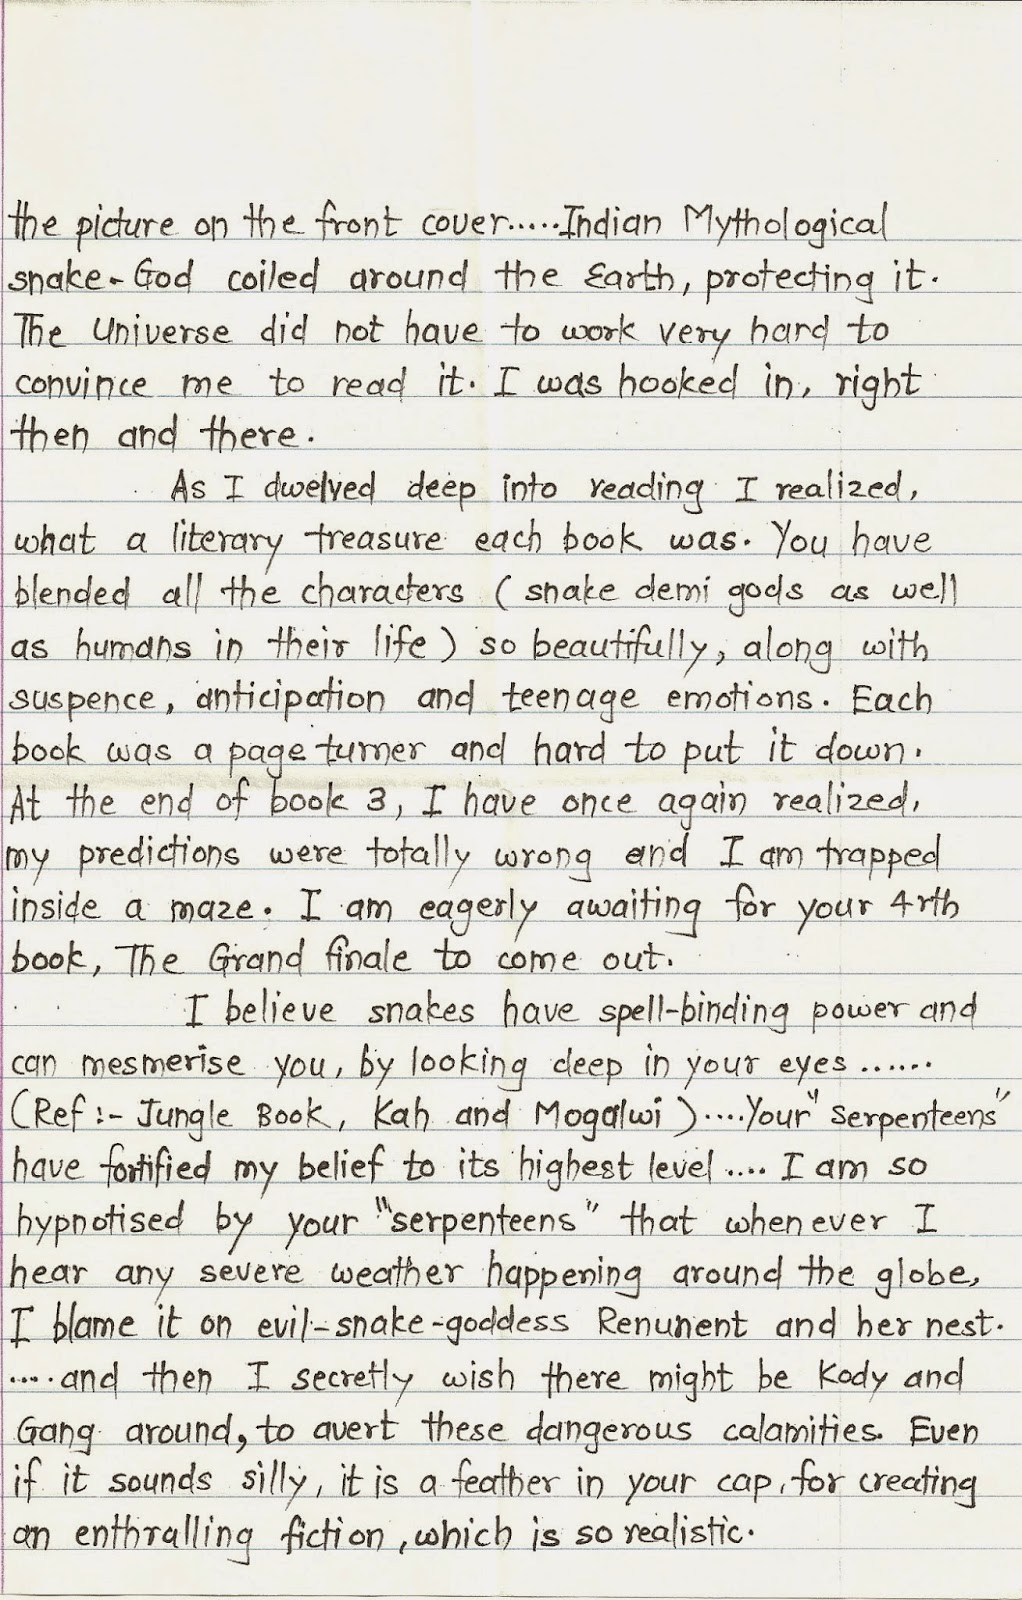 the picture on the front cover.....Indian Mythological
snake-God coiled around the Earth, protecting it.
The Universe did not have to work very hard to
convince me to read it. I was hooked in, right
then and there.
As I dwelved deep into reading I realized,
what a literary treasure each book was. You have
blended all the characters (snake demi gods as well
as humans in their life) so beautifully, along with
suspence, anticipation and teenage emotions. Each
book was a page turner and hard to put it down.
At the end of book 3, I have once again realized,
my predictions were totally wrong and I am trapped
inside a maze. I am eagerly awaiting for your 4rth
book, The Grand finale to come out.
I believe snakes have spell-binding power and
can mesmerise you, by looking deep in your eyes ......
(Ref :- Jungle Book, Kah and Mogalwi)....Your "serpenteens"
have fortified my belief to its highest level.... I am so
hypnotised by your "serpenteens" that whenever I
hear any severe weather happening around the globe,
I blame it on evil-snake-goddess Renunent and her nest.
....and then I secretly wish there might be Kody and
Gang around, to avert these dangerous calamities. Even
if it sounds silly, it is a feather in your cap, for creating
an enthralling fiction, which is so realistic.